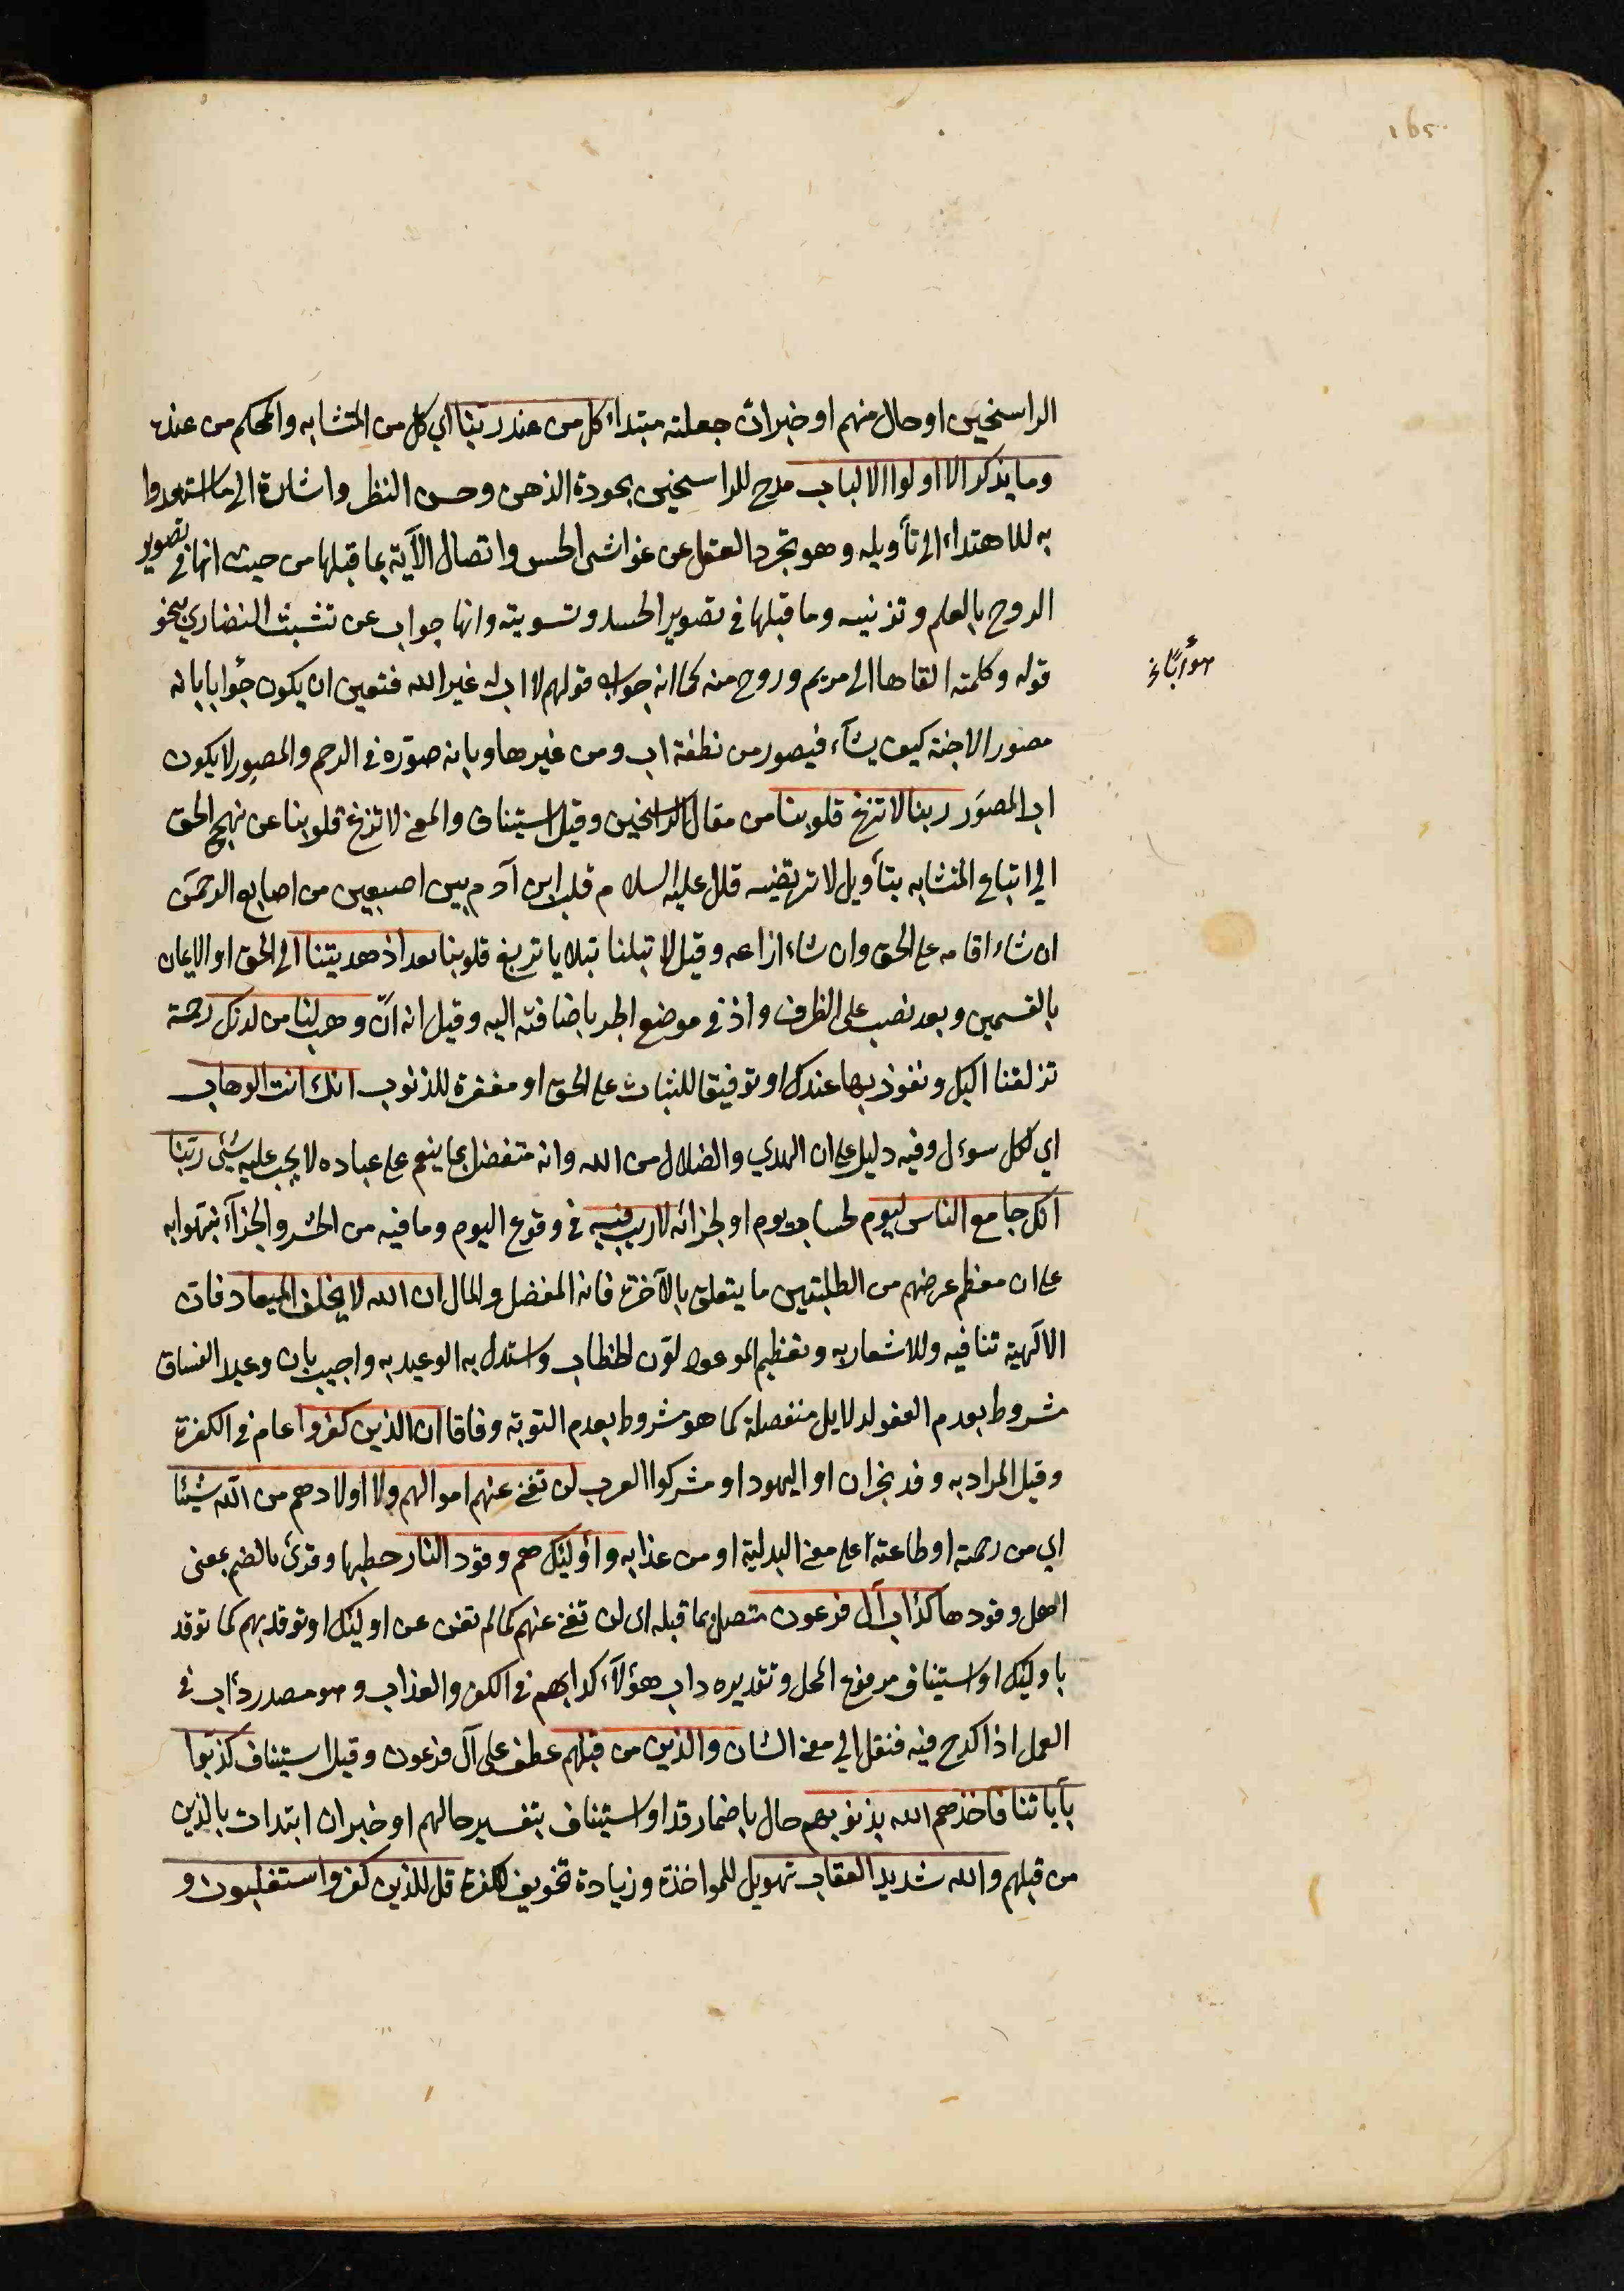 165
الراسخين او حال منهم او خبر ان جعلته مبتداء كل من عند ربنا اي كل من المتشابه والمحكم من عنده
وما يذكر الا اولوا الالباب مدح للراسخين بجودة الذهن وحسن النظر واشارة الى ما استعدوا
به للاهتداء الى تأويله وهو تجرد العقل عن غواشى الحس واتصال الآية بما قبلها من حيث انها في تصوير
الروح بالعلم وتزنيه وما قبلها في تصوير الجسد وتسويته وانها جواب عن تشبث النصاري بنحو
قوله وكلمته القاها الى مريم وروح منه كما انه جواب قولهم لا اب له غير الله فتعين ان يكون جوابا بانه
مصور الاجنة كيف يشآء فيصور من نطفة اب ومن غيرها وبانه صوّره في الرحم والمصور لا يكون
اب المصوَر ربنا لا تزغ قلوبنا من مقال الراسخين وقيل استيناف والمعنى لا تزغ قلوبنا عن نهج الحق
الى اتباع المتشابه بتأويل لا ترتضيه قال عليه السلام قلب ابن آدم بين اصبعين من اصابع الرحمن
ان شاء اقامه على الحق وان شاء ازاعه وقيل لا تبلنا ببلايا تزيغ قلوبنا بعد اذ هديتنا الى الحق او الايمان
بالقسمين وبعد نصب على الظرف واذ في موضع الجر باضافته اليه وقيل انه انّ وهب لنا من لدنك رحمة
تزلفنا اليك ونفوذ بها عندك او توفيقا للثبات على الحق او مغفرة للذنوب انك انت الوهاب
اي لكل سوءل وفيه دليل على ان الهدي والضلال من الله وانه متفضل بما ينعم على عباده لا يجب عليه شيئ ربنا
انك جامع الناس ليوم لحساب يوم او لجزائه لا ريب فيه في وقوع اليوم وما فيه من الحشر والجزآء نبتهوا به
على ان معظم غرضهم من الطلبتين ما يتعلق بالآخرة فانه المفضل والمال ان الله لا يخلف الميعاد فان
الالهية تنافيه وللاشعار به وتعظيم الموعود لوّن الخطاب واستدل به الوعيديه واجيب بان وعيد الفساق
مشروط بعدم العفو لدلايل منفصلة كما هو مشروط بعدم التوبة وفاقا ان الذين كفروا عام في الكفرة
وقيل المراد به وفد نجران او اليهود او مشركوا العرب لن تغني عنهم اموالهم ولا اولادهم من الله شيئا
اي من رحمته او طاعته على معنى البدلية او من عذابه واوليئك هم وقود النار حطبها وقرئ بالضم بمعنى
اهل وقودها كدأب آل فرعون متصل بما قبله اى لن تغني عنهم كما لم تغن عن اوليئك او توقد بهم كما توقد
باوليئك او استيناف مرفوع المحل وتقديره داب هؤلآء كدابهم في الكفر والعذاب وهو مصدر دأب في
العمل اذا كدح فيه فنقل الى معنى الشان والذين من قبلهم عطف على آل فرعون وقيل استيناف كذبوا
بأياتنا فاخذهم الله بذنوبهم حال باضمار قد او استيناف بتفسير حالهم او خبر ان ابتدات بالذين
من قبلهم والله شديد العقاب تهويل للمواخذة وزيادة تخويف للكفرة قل للذين كفروا ستغلبون و